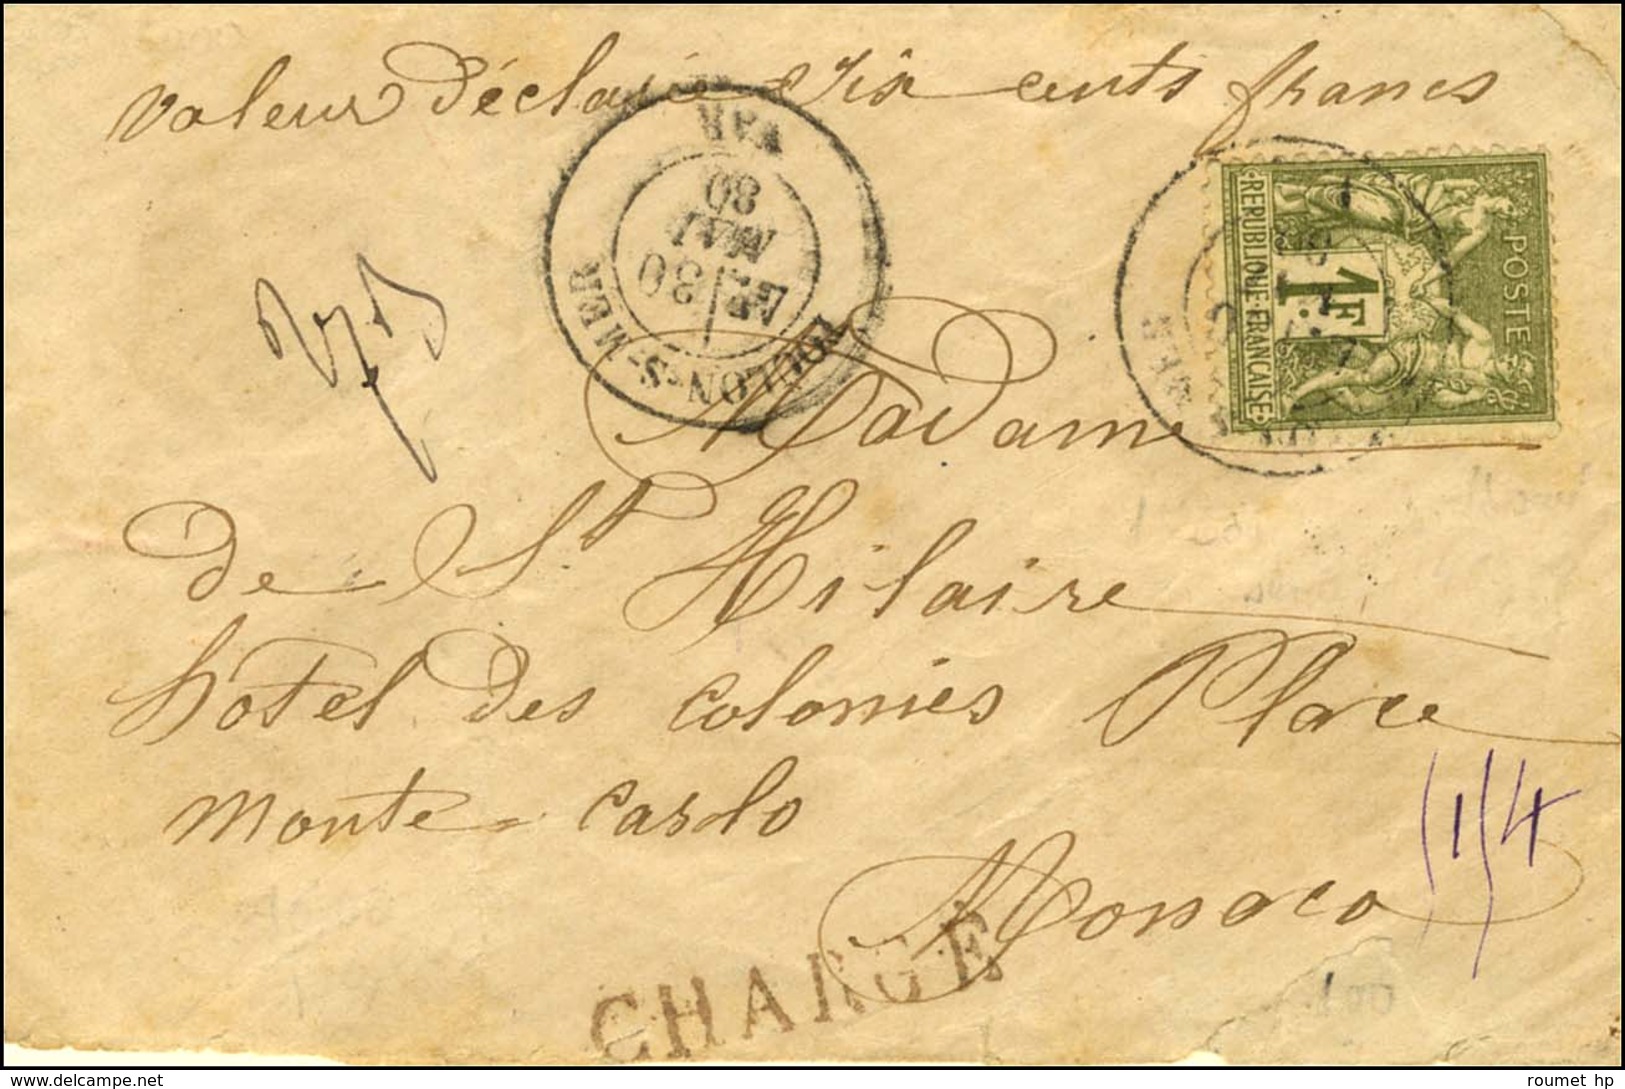 Valeur déclarée six cents francs
TOULON-S-MER
30
MAI
80
VAR
POSTE
1F
REPUBLIQUE FRANCAISE
Madame
de St Hilaire
hotel des colonies Place
Monte-Carlo
Monaco
1/4
CHARGÉ
roumet hp